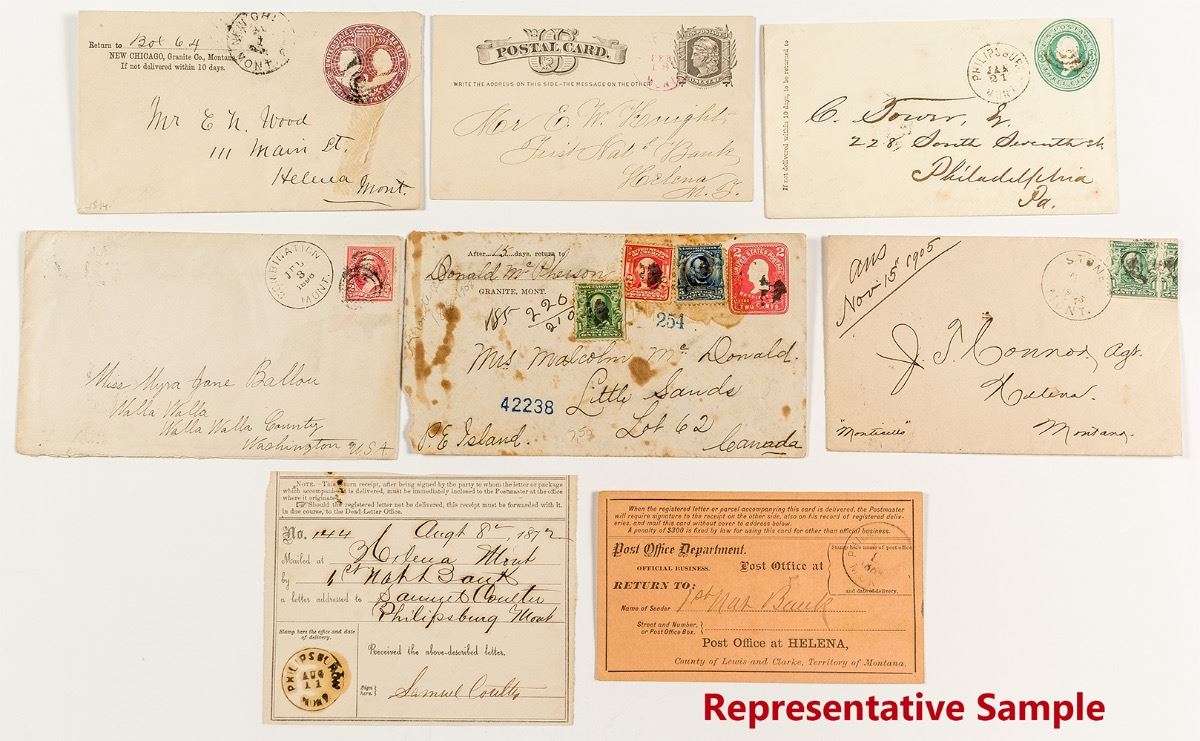 Return to Box 64
NEW CHICAGO, Granite Co., Montana
If not delivered within 10 days.
NEW CHI
MONT.
UNITED STATES OF AMERICA
TWO CENTS
Mr E. N. Wood
111 Main St.
Helena Mont.
POSTAL CARD.
WRITE THE ADDRESS ON THIS SIDE-THE MESSAGE ON THE OTHER
Mr E. W. Knight
First Nat'l Bank
Helena
M. T.
If not delivered within 10 days, to be returned to
PHILIPSBURG
JAN
21
MONT.
C. Tower, Jr.
228, South Seventh St
Philadelphia
Pa.
COMBINATION
3
MONT.
Miss Myra Jane Ballou
Walla Walla
Walla Walla County
Washington U.S.A
After 15 days, return to
Donald McPherson
GRANITE, MONT.
185 226
210
254
UNITED STATES POSTAGE
2
TWO CENTS
Mrs Malcolm McDonald.
42238
Little Sands
Lot 62
P.E Island.
Canada
ans
Nov 15th 1905
STONE
MONT.
J. T. Connor, Agt.
Helena.
"Monticello"
Montana.
NOTE.—This return receipt, after being signed by the party to whom the letter or package
which accompanies is delivered, must be immediately inclosed to the Postmaster at the office
where it originated.
Should the registered letter not be delivered, this receipt must be forwarded with it,
in due course, to the Dead-Letter Office.
No. 144 Augt 8th, 1872
Mailed at Helena Mont
by 1st Nat'l Bank
a letter addressed to Samuel Coulter
Philipsburg Mont
Stamp here the office and date
of delivery.
Received the above-described letter.
PHILIPSBURG
AUG
11
MON
Sign
here.
Samuel Coulter
When the registered letter or parcel accompanying this card is delivered, the Postmaster
will require signature to the receipt on the other side, also on his record of registered deliv-
eries, and mail this card without cover to address below.
A penalty of $300 is fixed by law for using this card for other than official business.
Post Office Department.
OFFICIAL BUSINESS.
Post Office at
Stamp here name of post office
and date of delivery.
RETURN TO:
Name of Sender 1st Nat Bank
Street and Number,
or Post Office Box.
Post Office at HELENA,
County of Lewis and Clarke, Territory of Montana.
Representative Sample